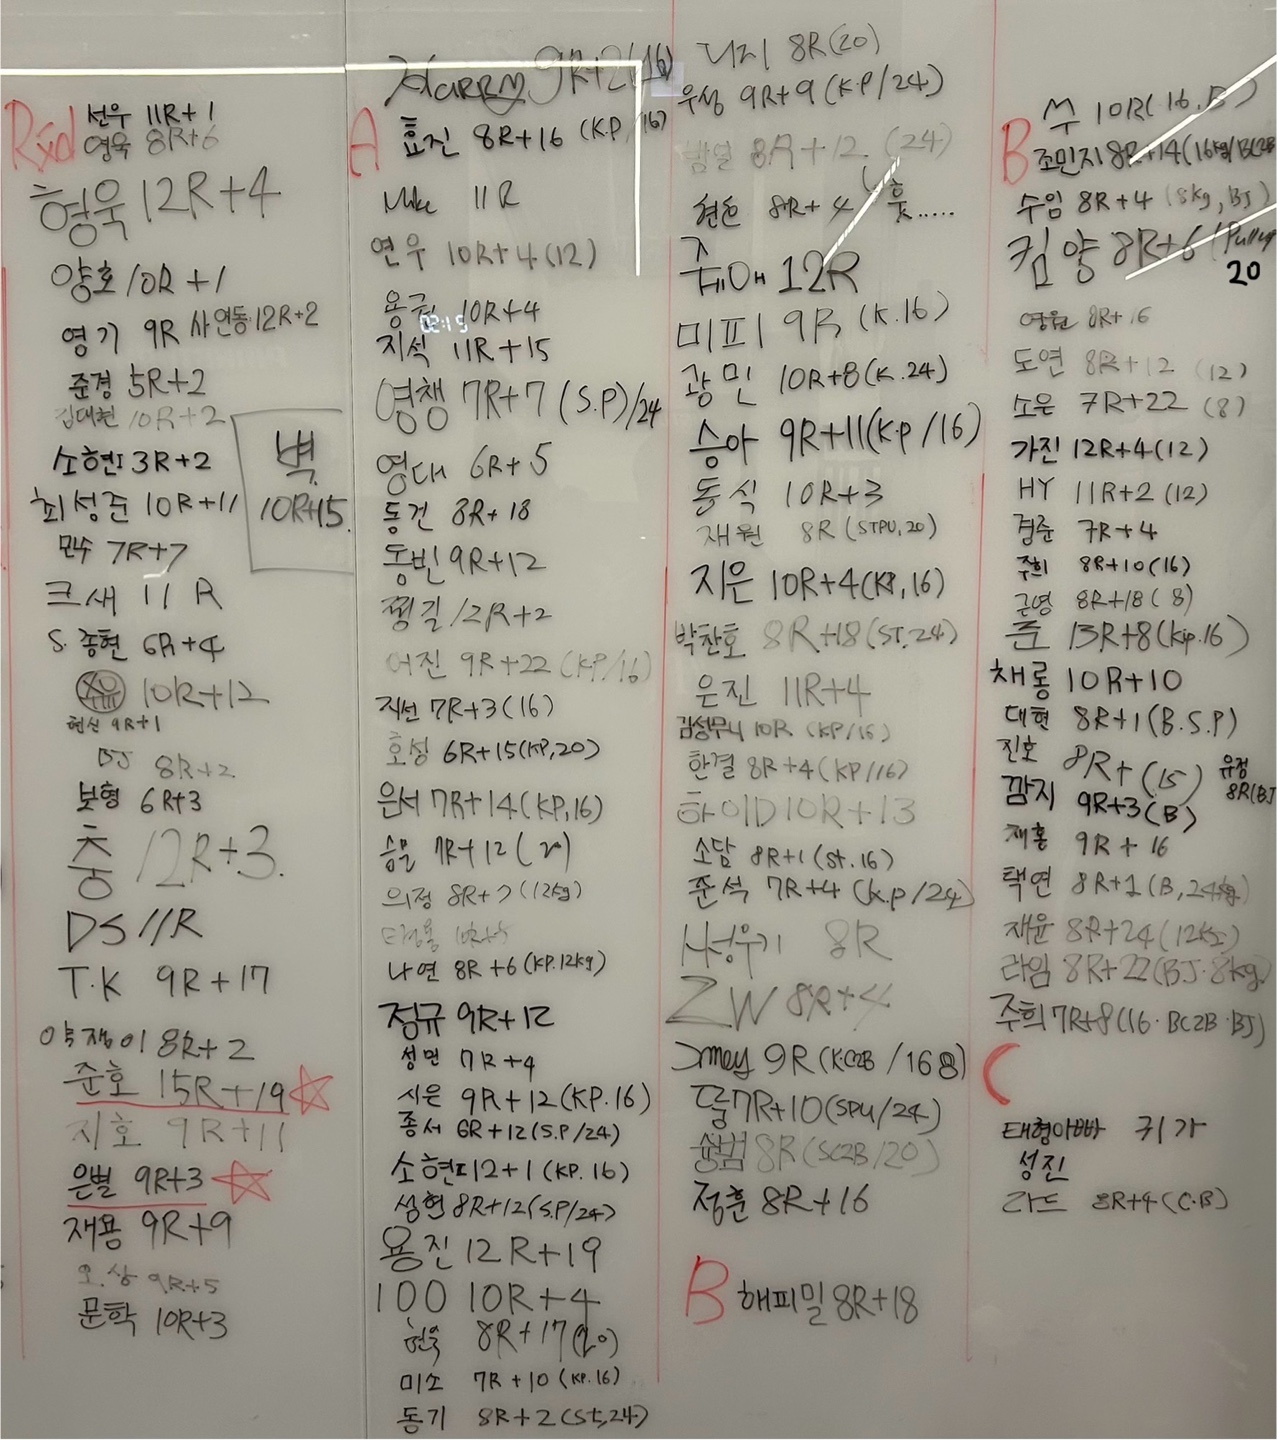 Rxd
선우 11R+1
영욱 8R+6
형욱 12R+4
양호 10R+1
영기 9R 사연동 12R+2
준경 5R+2
김대현 10R+2
소현I 3R+2
최성준 10R+11
벽 10R+15
민수 7R+7
크새 11R
S. 종현 6R+4
10R+12
현신 9R+1
BJ 8R+2
보형 6R+3
충 12R+3.
DS 11R
T.K 9R+17
약쟁이 8R+2
준호 15R+19
지호 9R+11
은별 9R+3
재용 9R+9
오.상 9R+5
문학 10R+3
Harry 9R+2(16)
A
효진 8R+16 (K.P/16)
Mike 11R
연우 10R+4(12)
10R+4
지석 11R+15
영챙 7R+7 (S.P)/24
영대 6R+5
동건 8R+18
동빈 9R+12
찡길 12R+2
어진 9R+22 (KP/16)
지선 7R+3(16)
호성 6R+15(KP,20)
은서 7R+14(KP,16)
승문 7R+12(20)
의정 8R+7(12kg)
나연 8R+6(KP.12kg)
정규 9R+12
성민 7R+4
시은 9R+12(KP.16)
종서 6R+12(S.P/24)
소현II 12+1(KP.16)
성현 8R+12(S.P/24)
용진 12R+19
100 10R+4
현욱 8R+17(20)
미소 7R+10(KP.16)
동기 8R+2(St,24)
니지 8R(20)
우성 9R+9(K.P/24)
8R+12 (24)
현손 8R+4 훗.....
쥬니애 12R
미피 9R(K.16)
광민 10R+8(K.24)
승아 9R+11(K.P/16)
동식 10R+3
재원 8R(STPU,20)
지은 10R+4(KP,16)
박찬호 8R+18(ST.24)
은진 11R+4
김성무니 10R (KP/16)
한결 8R+4(KP/16)
하이D 10R+13
소담 8R+1(St.16)
준석 7R+4(K.P/24)
8R
ZW 8R+4
Jmey 9R(KC2B/168)
7R+10(SPU/24)
용범 8R(SC2B/20)
정훈 8R+16
B
해피밀 8R+18
B
10R(16.B)
조민지 8R+14(16kg/BC2B
수임 8R+4(8kg,BJ)
킴양 8R+6(Pullup
20
영원 8R+16
도연 8R+12 (12)
소은 7R+22 (8)
가진 12R+4(12)
HY 11R+2(12)
경준 7R+4
주희 8R+10(16)
근영 8R+18(8)
준 13R+8(Kip.16)
채롱 10R+10
대현 8R+1(B.S.P)
진호 8R+(15)
유정 8R(BJ
깜지 9R+3(B)
재홍 9R+16
택연 8R+1(B,24kg)
재윤 8R+24(12kg)
라임 8R+22(BJ.8kg)
주희 7R+8(16·BC2B·BJ)
C
태형아빠 귀가
성진
라드 8R+4(C.B)